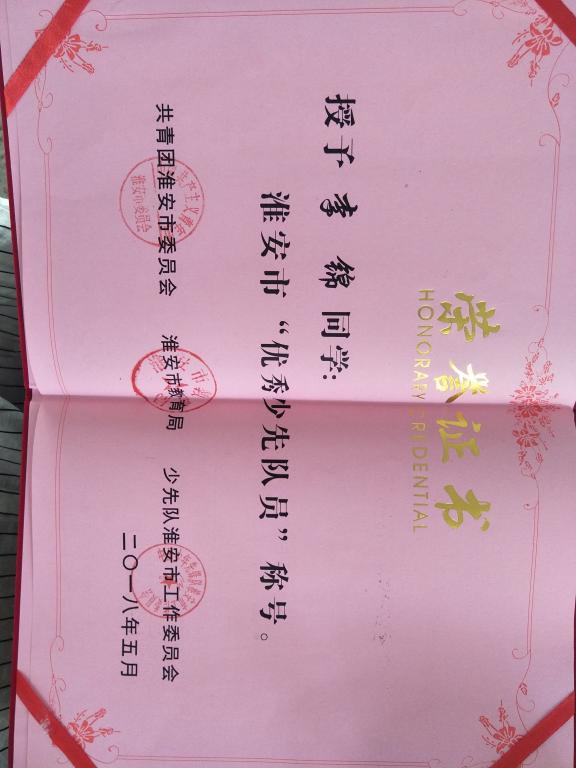 荣誉证书
HONORARY CREDENTIAL
授予 李 锦 同学：
淮安市“优秀少先队员”称号。
共青团淮安市委员会 淮安市教育局 少先队淮安市工作委员会
二〇一八年五月